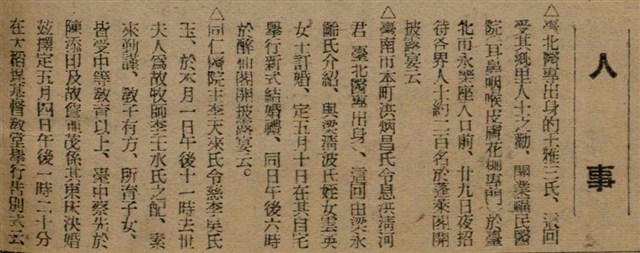 人事
△臺北醫專出身的王雅三氏、這回
受其鄉里人士之勸、開業福民醫
院(耳鼻咽喉皮膚花柳專門)於臺
北市永樂座入口前、廿九日夜招
待各界人士約二百名於蓬萊閣開
披露宴云
△臺南市本町洪炳昌氏令息洪清河
君(臺北醫專出身)、這回由梁永
氏介紹、與梁清波氏姪女雲英
女士訂婚、定五月十日在其自宅
舉行新式結婚禮、同日午後六時
於醉仙閣開披露宴云。
△同仁醫院主李天來氏令慈李吳氏
玉、於本月一日午後十一時去世
夫人為故牧師李士水氏之配、素
來勤謹、教子有方、所育子女、
皆受中等教育以上、臺中蔡先於
陳添印及故詹茂係其東床決婚
玆擇定五月四日午後一時二十分
在大稻埕基督教堂舉行告別式云